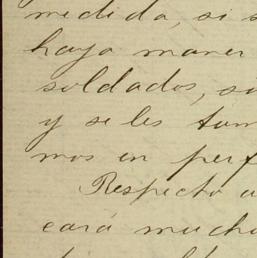 medida, si s
haya maner
soldados, si
y se les tom
mos en perf
Respecto a
cará mucho